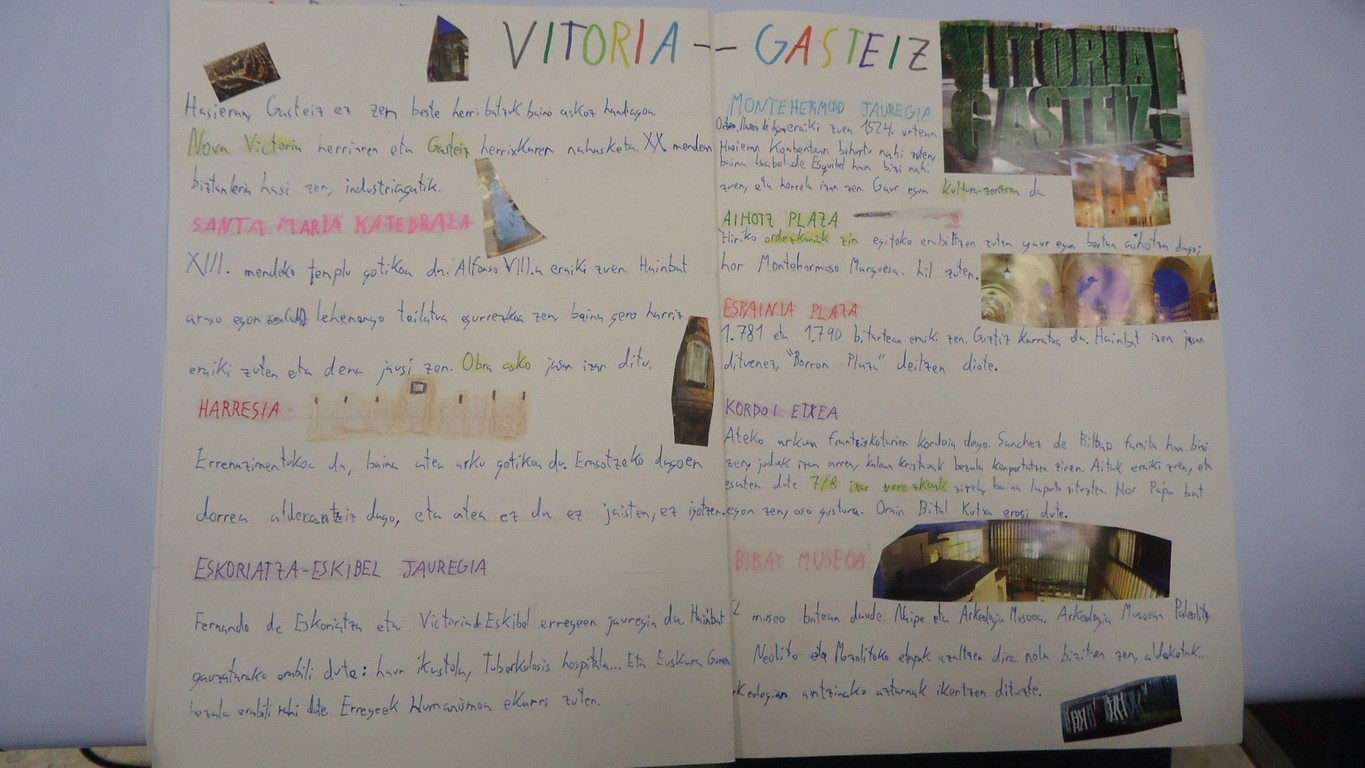 VITORIA -- GASTEIZ
Hasieran Gasteiz ez zen beste herri batzuk baino askoz handiagoa.
Nova Victoria herriaren eta Gasteiz herrixkaren nahasketa. XX mendean
biztanleria hasi zen, industriagatik.
SANTA MARIA KATEDRALA
XIII. mendeko tenplu gotikoa da. Alfonso VIII.a eraiki zuen. Hainbat
arazo egon lehenengo teilatua egurrezkoa zen, baina gero harriz
eraiki zuten eta dena jausi zen. Obra asko jasan izan ditu.
HARRESIA
Errenazimentukoa da, baina atea arku gotikoa du. Erasotzeko dagoen
dorrea alderantziz dago, eta atea ez da ez jaisten, ez igotzen.
ESKORIATZA-ESKIBEL JAUREGIA
Fernando de Eskoriatza eta Victoria de Eskibel erregeen jauregia da. Hainbat
gauzatarako erabili dute: haur ikastola, Tuberkulosis hospitala... Eta Euskara
bezala erabili nahi dute. Erregeek Humanismoa ekarri zuten.
VITORIA!
GASTEIZ!
MONTEHERMOSO JAUREGIA
eraiki zuen 1524. urtean
Hasieran bihurtu nahi zuten,
baina Isabel de Esquibel han bizi nahi
zuen, eta horrela izan zen. Gaur egun kultur-zentroa da
AIHOTZ PLAZA
Hiriko ordezkariak zin egiteko erabiltzen zuten gaur egun bertan aihotza dago;
hor Montehermoso Marquesa. hil zuten.
ESPAINIA PLAZA
1.781 eta 1.790 bitartean eraiki zen. Guztiz karratua da. Hainbat izen jasan
dituenez, "Borron Plaza" deitzen diote.
KORDOI ETXEA
Ateko arkuan frantziskotarren kordoia dago. Sanchez de Bilbao familia han bizi
zen, juduak izan arren, kalean kristauak bezala konportatzen ziren. Aitak eraiki zuen, eta
esaten dute 7/8 izar zirela, baina inputatu zituzten. Hor Papa bat
egon zen, oso gustura. Orain Bital Kutxa erosi dute.
BIBAT MUSEOA
2 museo batean daude: Naipe eta Arkeologia Museoa. Arkeologia Museoan Paleolito,
Neolito eta Mezolitoko etapak azaltzen dira. nola bizitzen zen, aldaketak...
Arkeologian antzinako aztarnak ikertzen dituzte.